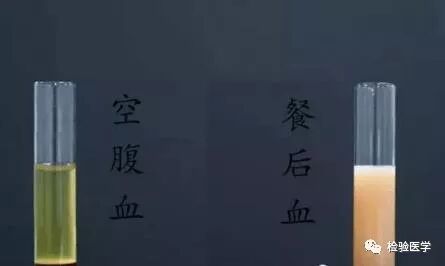 空腹血
餐后血
检验医学